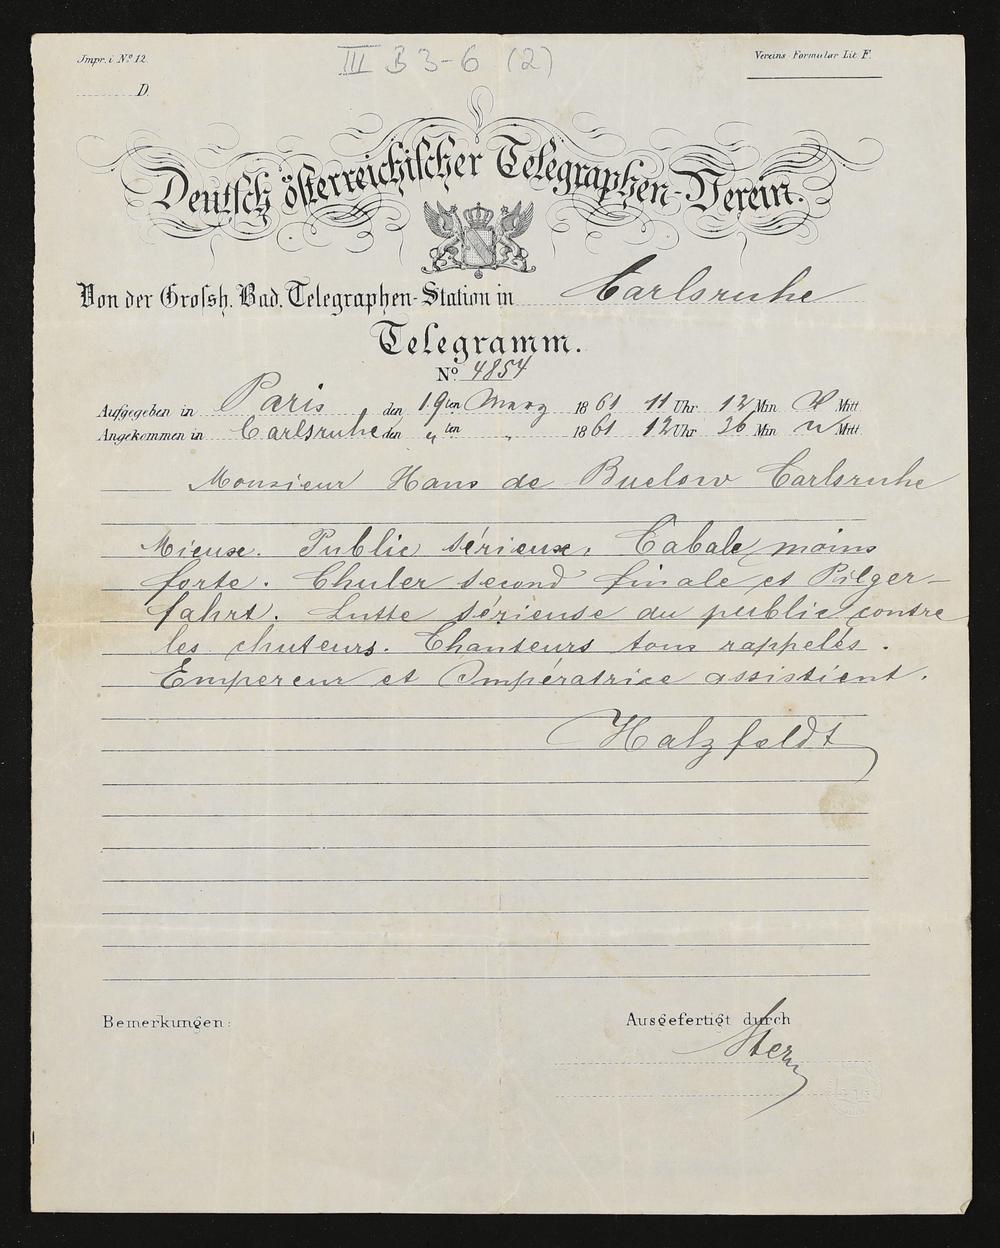 Impr. i. No 12.
III B 3-6 (2)
Vereins-Formular Lit. F.
D.
Deutsch österreichischer Telegraphen-Verein.
Von der Grossh. Bad. Telegraphen-Station in Carlsruhe
Telegramm.
No. 4854
Aufgegeben in Paris den 19ten März 1861 11 Uhr 12 Min V Mitt.
Angekommen in Carlsruhe den " ten " 1861 12 Uhr 36 Min N Mitt.
Monsieur Hans de Buelow Carlsruhe
Mieux. Public sérieux. Cabale moins
forte. Chuter second finale et Pilger-
fahrt. Lutte sérieuse du public contre
les chuteurs. Chanteurs tous rappelés.
Empereur et Impératrice assistient.
Hatzfeldt
Bemerkungen:
Ausgefertigt durch
Stern